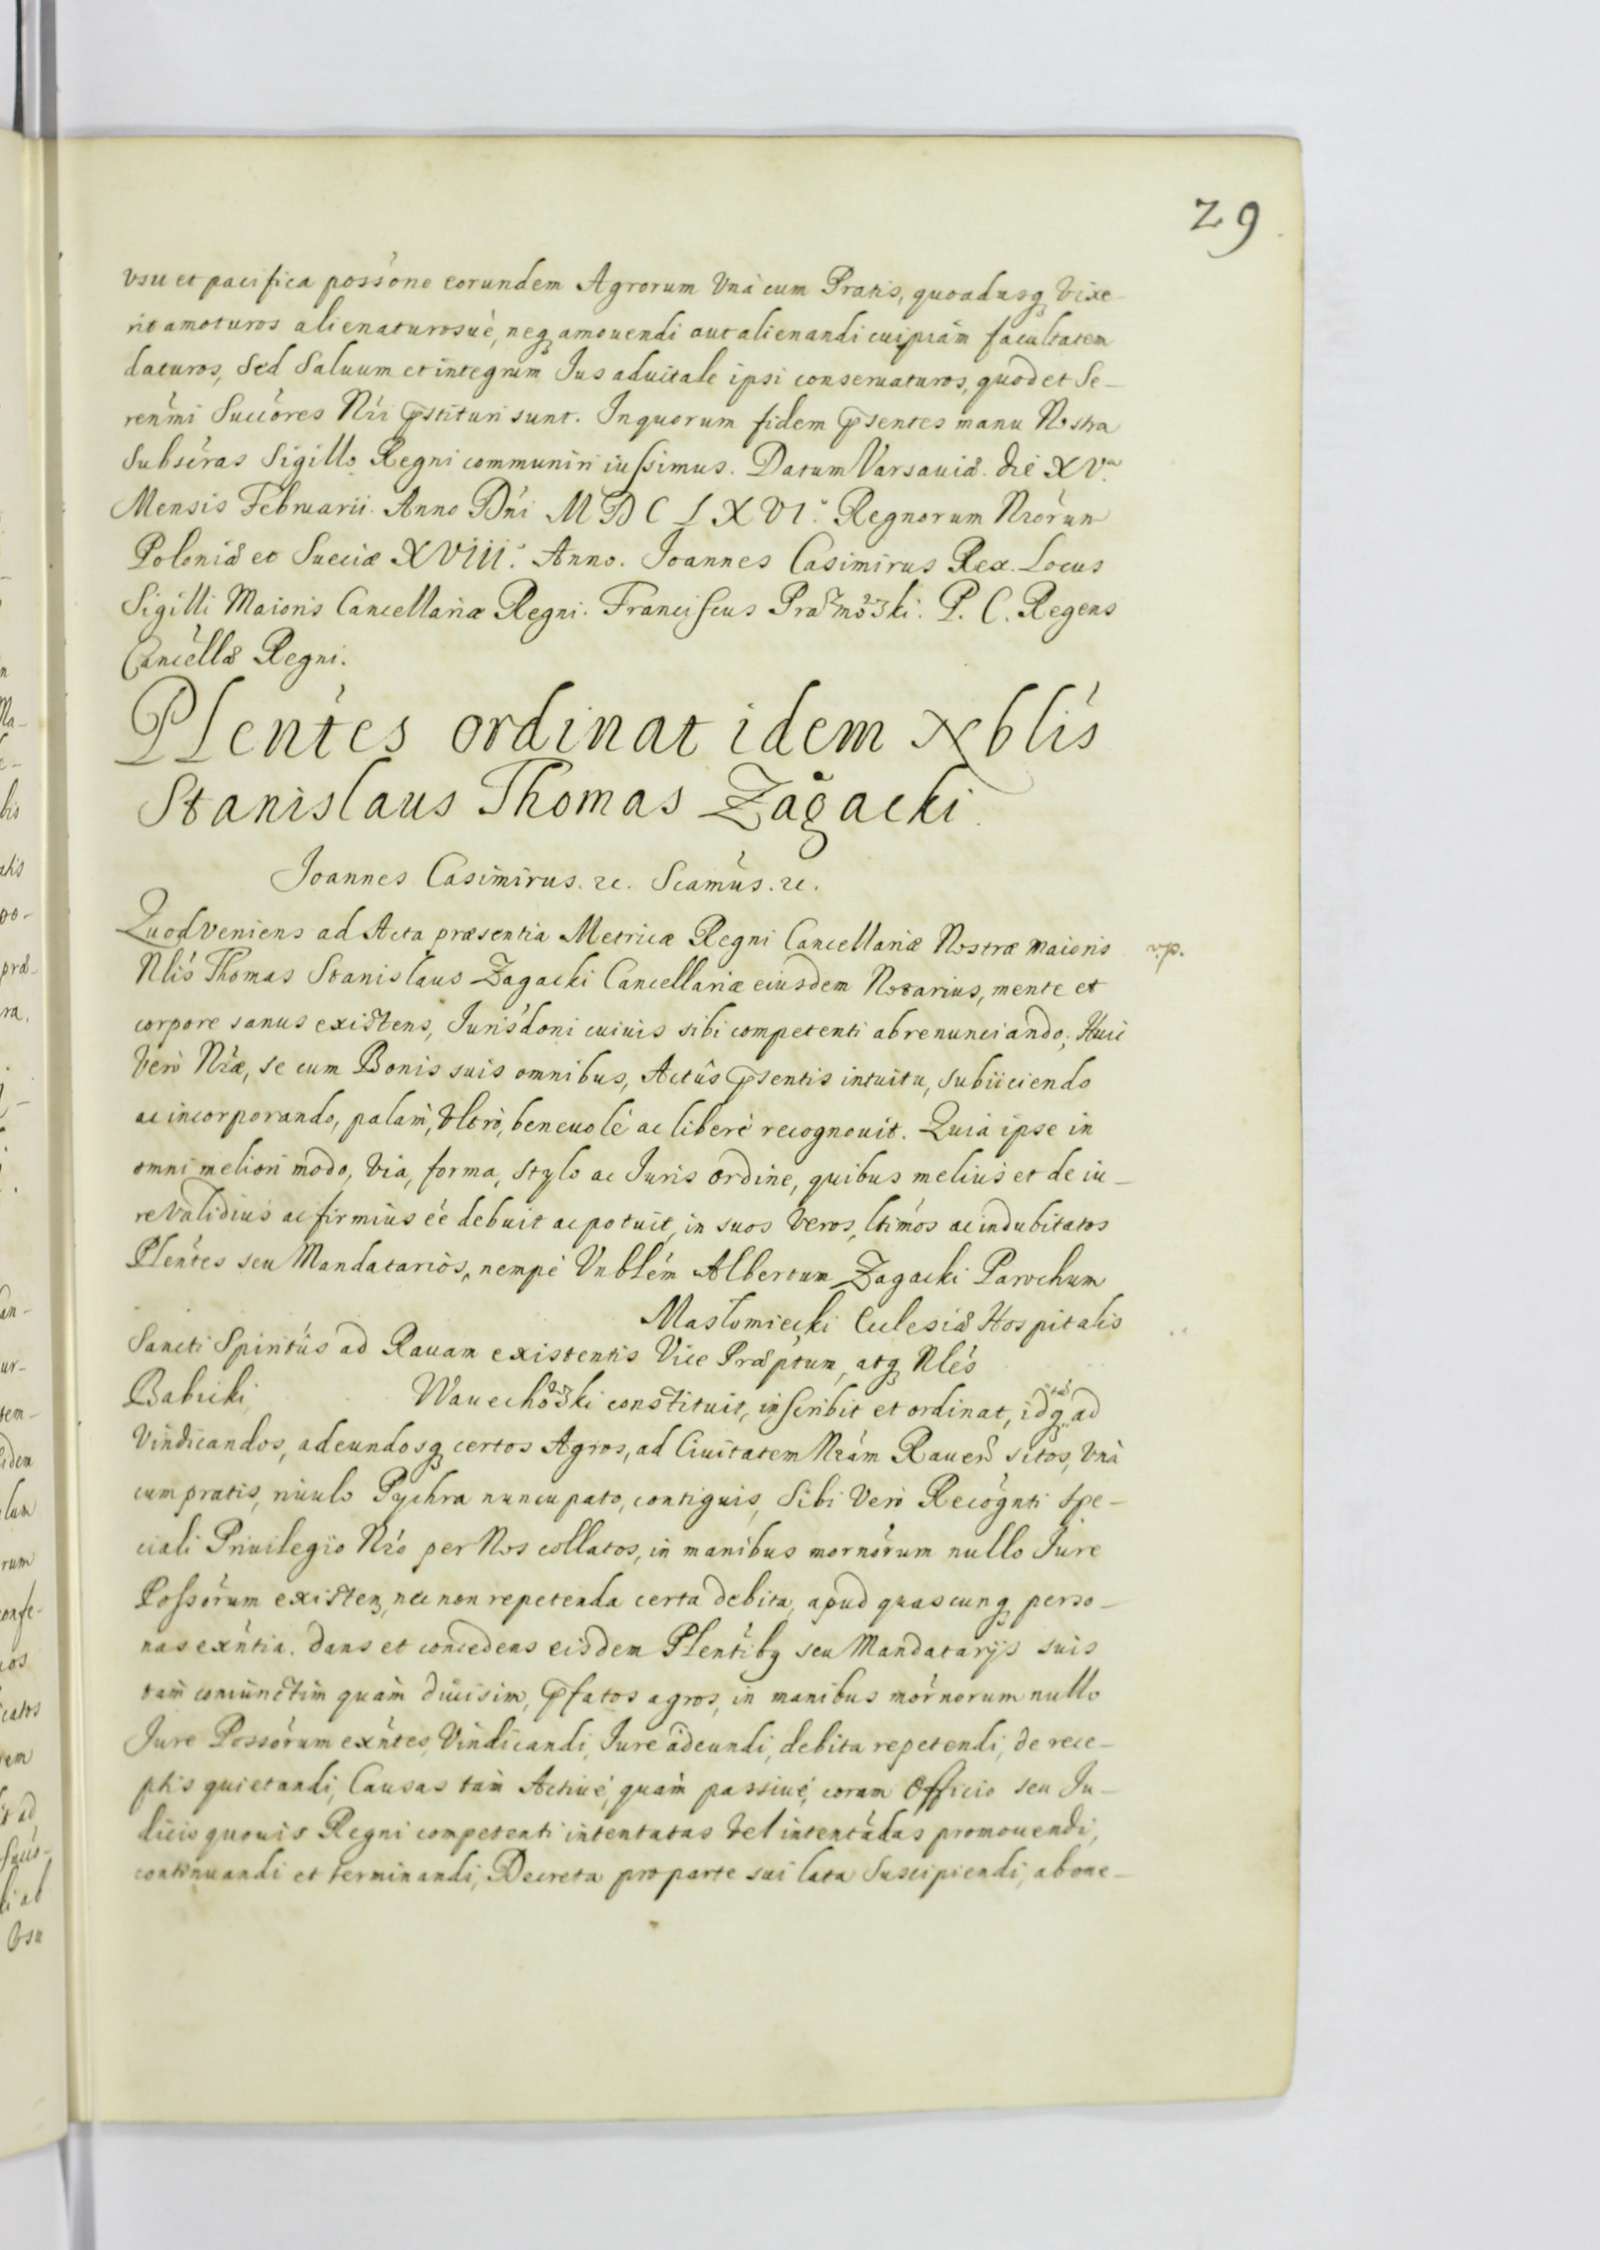 29
vsu et pacifica possóne eorundem Agrorum Vnà cum Pratis, quoadusq Vixe-
rit amoturos alienaturosuè, neq amouendi aut alienandi cuipiám facultatem
daturos, sed Saluum et integrum Jus aduitale ipsi conseruaturos, quod et Se-
renḿi Succóres Nŕi p̃stituri sunt. In quorum fidem p̃sentes manu Nostra
Subscŕas Sigillo Regni communiri iussimus. Datum Varsauiæ die XVa.
Mensis Februarii Anno Dńi MDCLXVIo. Regnorum Nrórum
Poloniæ et Sueciæ XVIIIo. Anno. Joannes Casimirus Rex. Locus
Sigilli Maioris Cancellariæ Regni. Franciscus Praʒmowski. P. C. Regens
Cancéllæ Regni.
Plentés ordinat idem Nblís
Stanislaus Thomas Zagacki.
Joannes Casimirus. &c. Scamús. &c.
Quod veniens ad Acta præsentia Metricæ Regni Cancellariæ Nostræ maioris
v.p.
Nlís Thomas Stanislaus Zagacki Cancellariæ eiusdem Notarius, mente et
corpore sanus existens, Jurisdóni cuiuis sibi competenti abrenunciando, Huic
Verò Nŕæ, se cum Bonis suis omnibus, Actûs p̃sentis intuitu, subiiciendo
ac incorporando, palàm, Vltrò, beneuolè ac liberè recognouit. Quia ipse in
omni meliori modo, Via, forma, stylo ac Juris ordine, quibus melius et de iu-
re Validiùs ac firmiùs éé debuit ac potuit, in suos Veros, ltimós ac indubitatos
Plentés seu Mandatariòs, nempè Vnblém Albertum Zagacki Parochum
Masłomiecki Ecclesiæ Hospitalis
Sancti Spiritûs ad Rauam existentis Vice Præptum, atq Nlés
Babicki Wauechowski constituit, inscribit et ordinat, idq ad
Vindicandos, adeundosq certos Agros, ad Ciuitatem Nrám Rauen sitos, Vnà
cum pratis, riuulo Pychra nuncupato, contiguis, Sibi Verò Recognti spe-
ciali Priuilegio Nró per Nos collatos, in manibus mornórum nullo Jure
Possórum existen, nec non repetenda certa debita, apud quascunq perso-
nas exńtia. Dans et concedens eisdem Plentibq seu Mandatarijs suis
tam coniunctim quàm diuisim, p̃fatos agros, in manibus mornorum nullo
Jure Possórum exńtes, Vindicandi, Jure adeundi, debita repetendi, de rece-
ptis quietandi, Causas tàm Actiuè, quàm passiuè, coram Officio seu Ju-
dicio quouis Regni competenti intentatas Vel intentádas promouendi,
continuandi et terminandi, Decreta pro parte sui lata Suscipiendi, ab one-